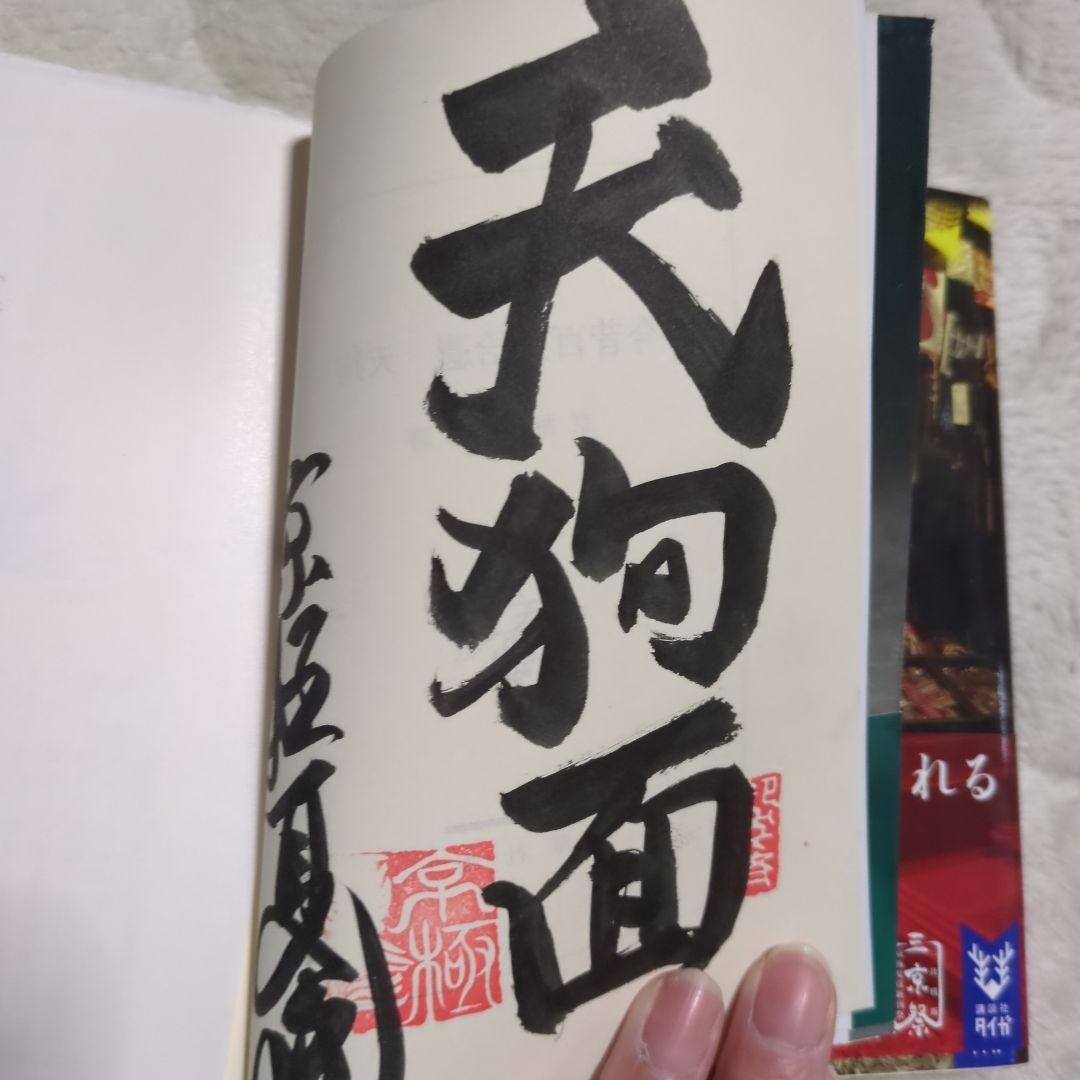 天狗面
京極夏彦
京極
れる
三京祭
講談社
タイガ